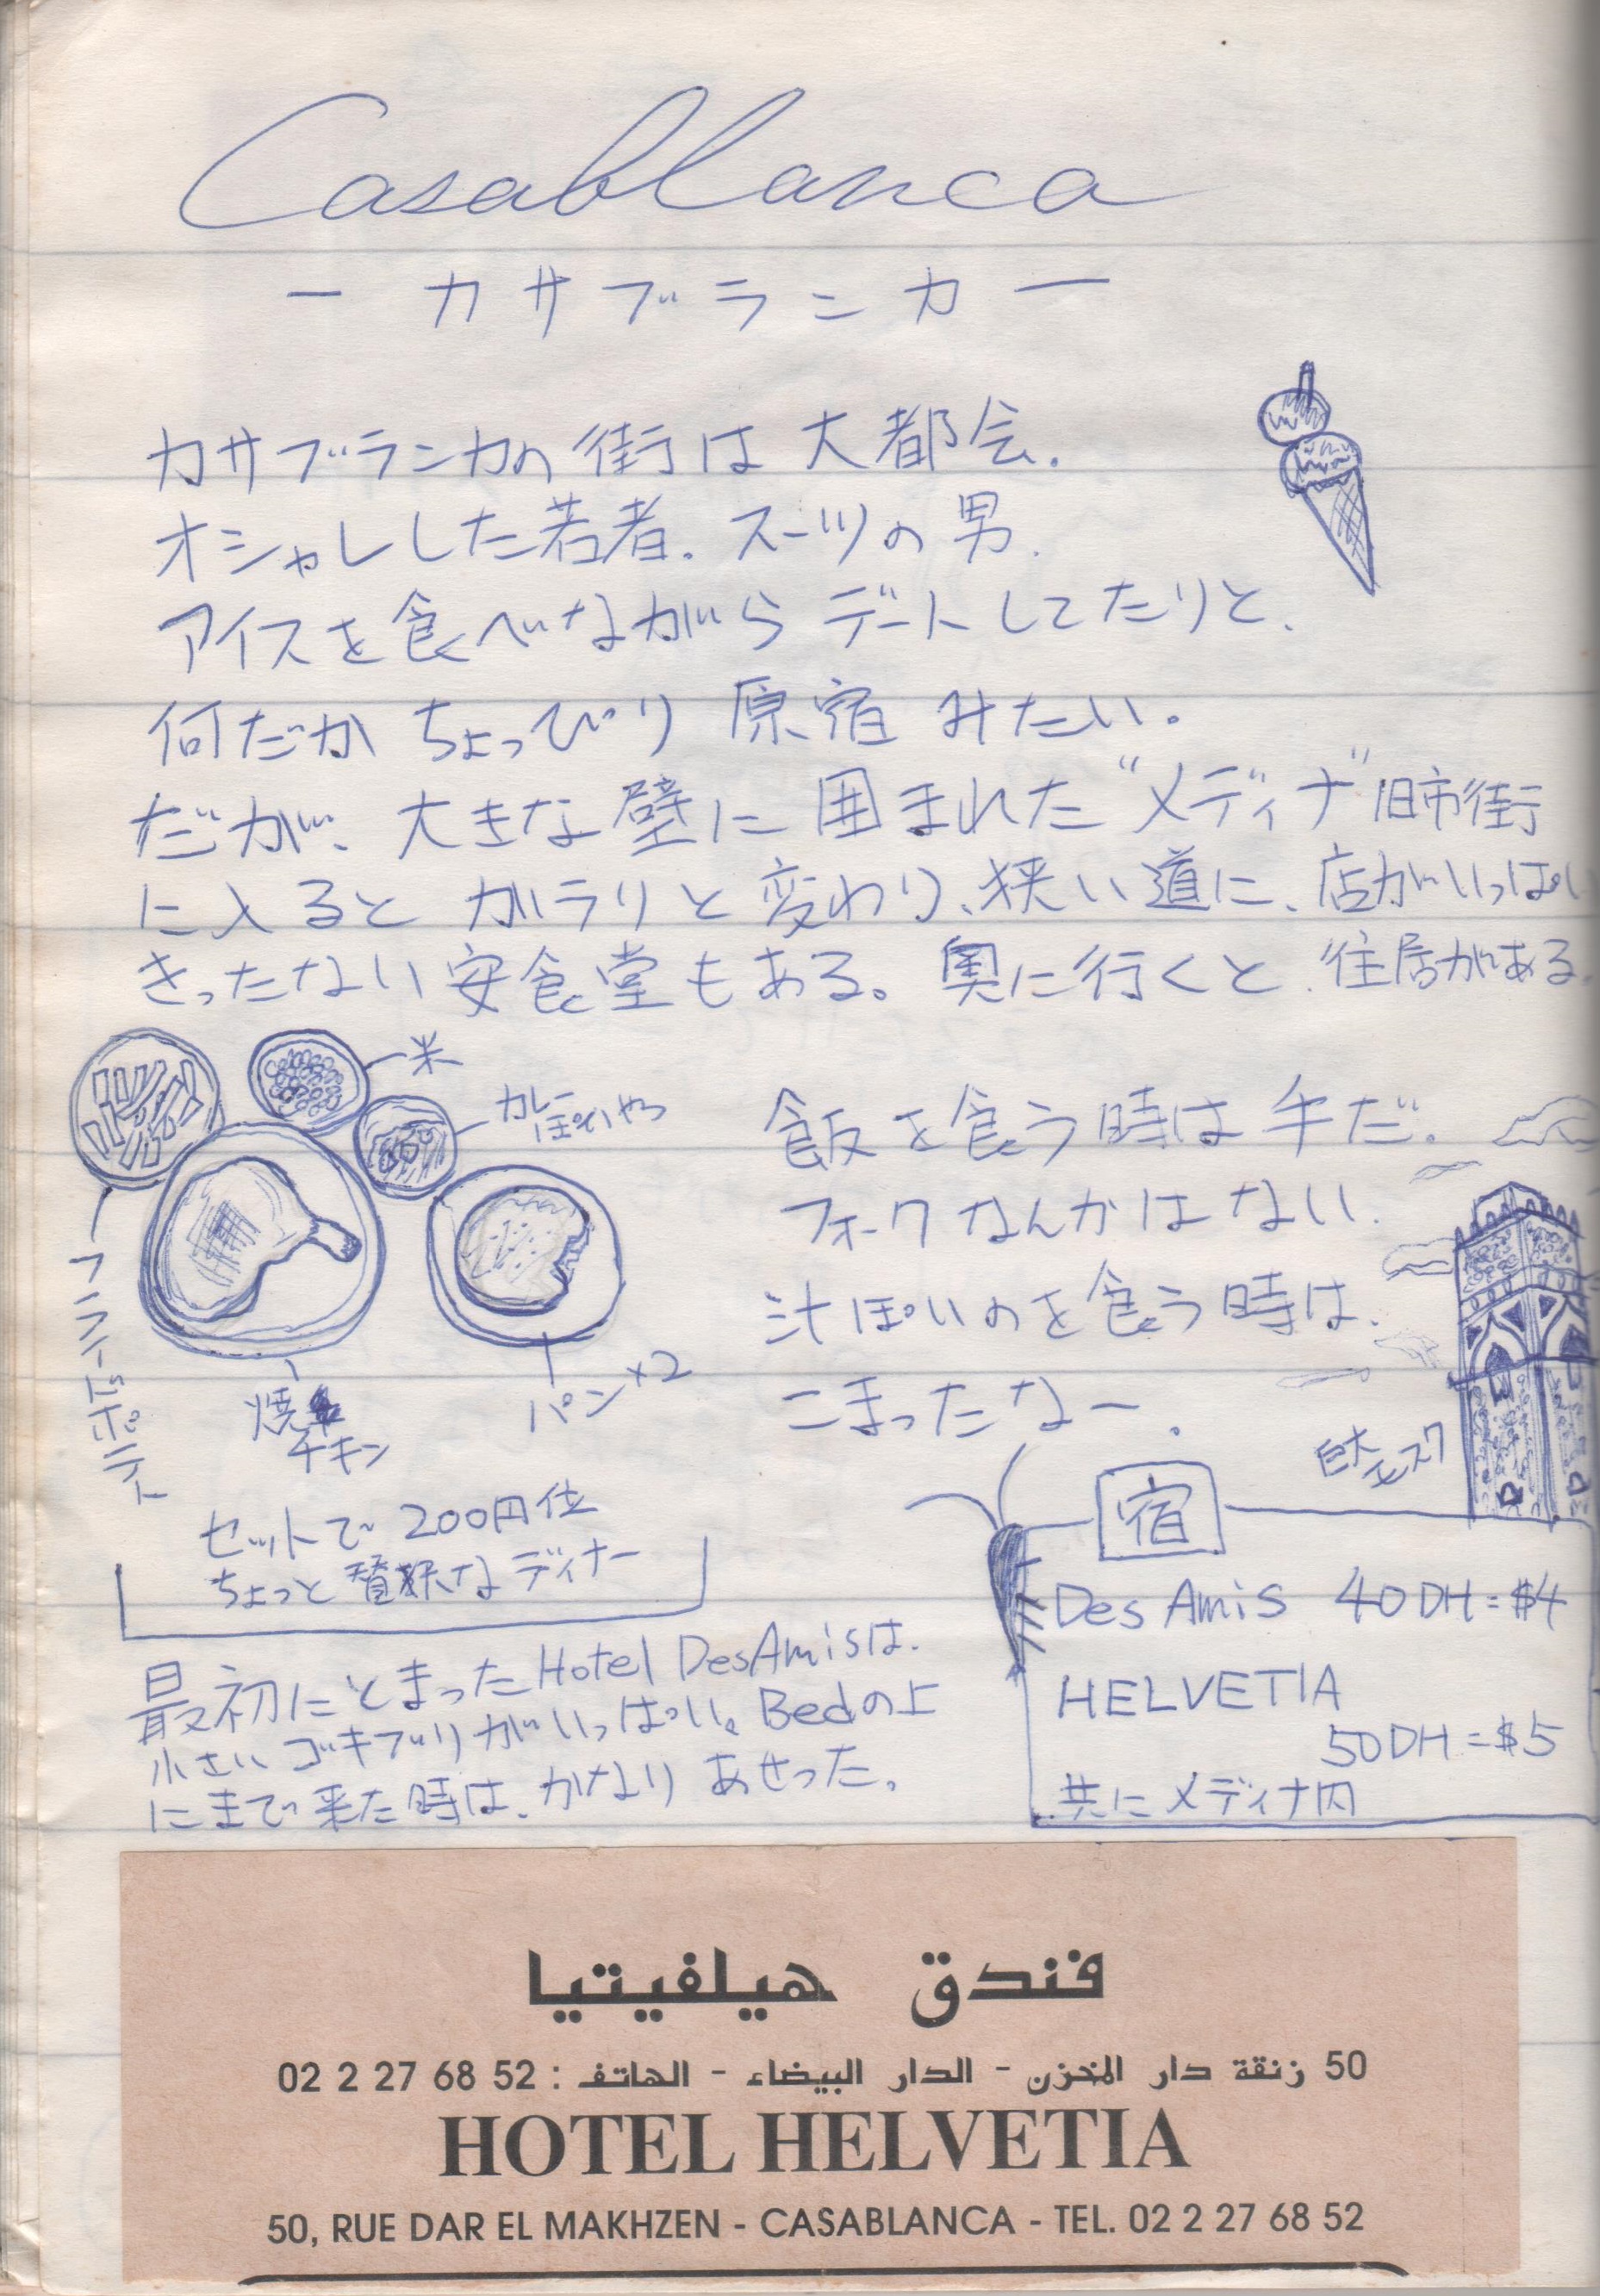 Casablanca
ー カサブランカ ー
カサブランカの街は大都会.
オシャレした若者。スーツの男.
アイスを食べながらデートしてたりと、
何だかちょっぴり原宿みたい。
だが、大きな壁に囲まれた"メディナ"旧市街
に入るとガラリと変わり、狭い道に、店がいっぱい
きったない安食堂もある。奥に行くと、住居がある.
米
カレー
ぽいやつ
フライドポテト
焼
チキン
パン×2
セットで200円位
ちょっと贅沢なディナー
飯を食う時は手だ.
フォークなんかはない.
汁ぽいのを食う時は、
こまったなー.
巨大モスク
宿
Des Amis 40DH=$4
HELVETIA
50DH=$5
共にメディナ内
最初にとまったHotel DesAmisは、
小さいゴキブリがいっぱい。Bedの上
にまで来た時は、かなりあせった。
فندق هيلفيتيا
50 زنقة دار المخزن - الدار البيضاء - الهاتف : 02 2 27 68 52
HOTEL HELVETIA
50, RUE DAR EL MAKHZEN - CASABLANCA - TEL. 02 2 27 68 52